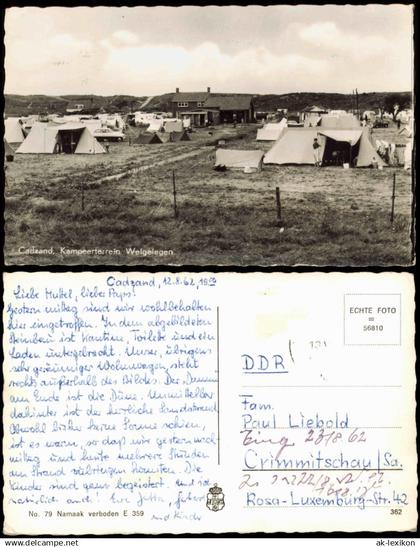 Cadzand, Kampeerterrein Welgelegen
Cadzand, 12.8.62, 18
Liebe Muttel, lieber Paps!
Gestern mittag sind wir wohlbehalten
hier eingetroffen. In dem abgebildeten
Steinbau ist Kantine, Toilette und ein
Laden untergebracht. Unser, übrigens
sehr geräumiger Wohnwagen, steht
rechts außerhalb des Bildes. Der "Damm"
am Ende ist die Düne. Unmittelbar
dahinter ist der herrliche Sandstrand.
Obwohl bisher keine Sonne schien,
ist es warm, so daß wir gestern nach-
mittag und heute mehrere Stunden
am Strand zubringen konnten. Die
Kinder sind ganz begeistert. Und
natürlich auch! Eure Jutta,
und Kinder
No. 79 Namaak verboden E 359
ECHTE FOTO
56810
DDR
Fam.
Paul Liebold
Eing. 23/8 62
Crimmitschau/Sa.
Rosa-Luxemburg-Str. 42
362
www.ak-lexikon.com